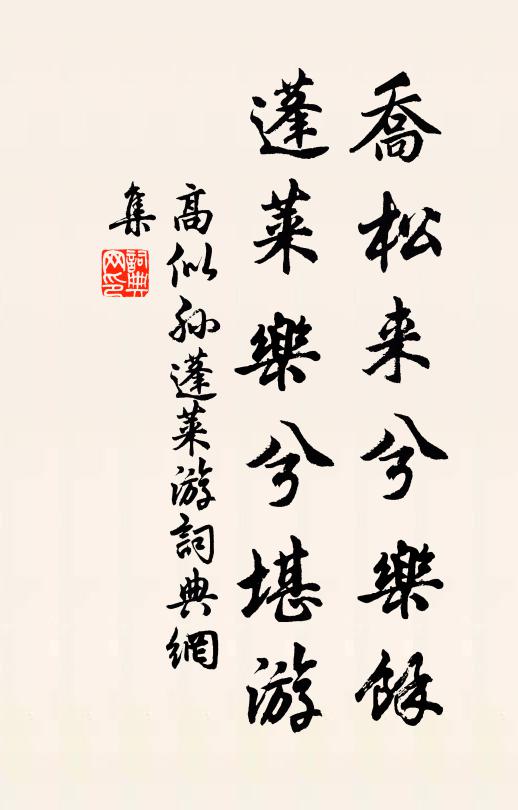 喬松来兮樂餘
蓬萊樂兮堪游
高似孙蓬萊游詞典網
集
詞典
网印